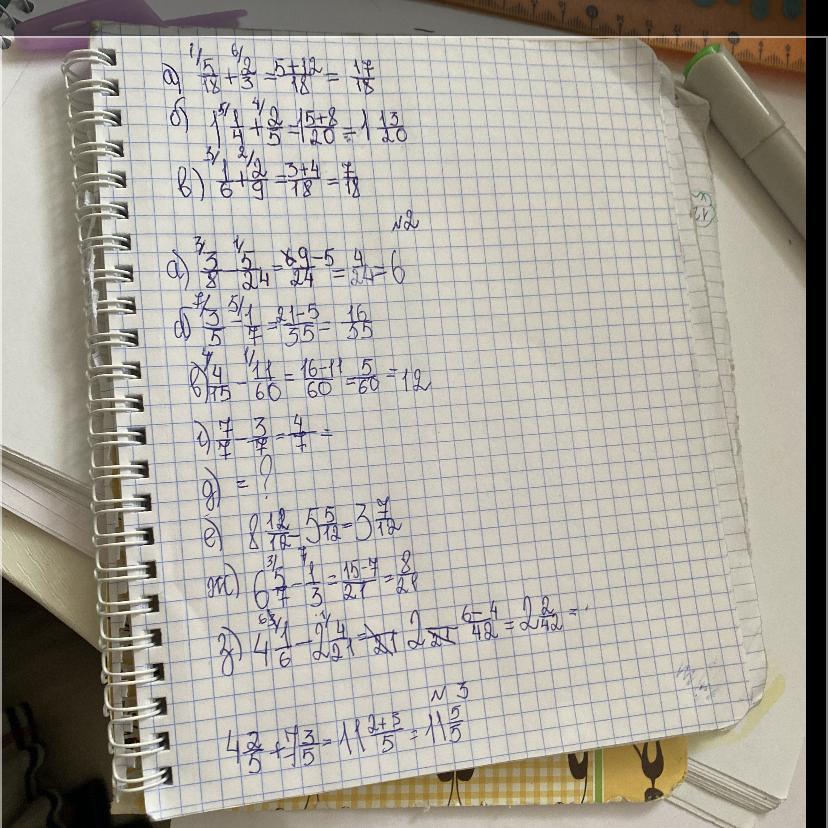 а) 1/ 5/18 + 6/ 2/3 = 5+12/18 = 17/18
б) 1 5/ 1/4 + 4/ 2/5 = 15+8/20 = 1 13/20
в) 3/ 1/6 + 2/ 2/9 = 3+4/18 = 7/18
№2
а) 3/ 3/8 - 1/ 5/24 = 9-5/24 = 4/24 = 6
б) 7/ 3/5 - 5/ 1/7 = 21-5/35 = 16/35
в) 4/ 4/15 - 1/ 11/60 = 16-11/60 = 5/60 = 12
г) 7/7 - 3/7 = 4/7 =
д) = ?
е) 8 12/12 - 5 5/12 = 3 7/12
ж) 6 3/ 5/7 - 7 1/3 = 15-7/21 = 8/21
з) 4 1/6 - 2 4/21 = 2 6-4/42 = 2 2/42 =
№3
4 2/5 + 7 3/5 = 11 2+3/5 = 11 5/5